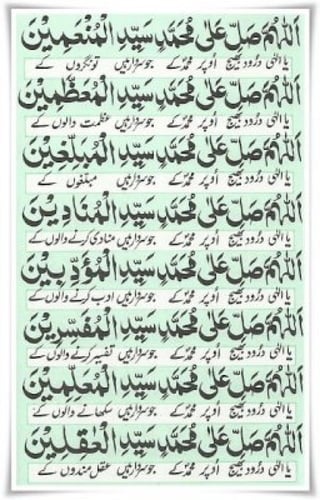 اَللّٰهُمَّ صَلِّ عَلٰى مُحَمَّدٍ سَيِّدِ الْمُنْعَمِيْنَ
یا الٰہی درود بھیج اوپر محمدؐ کے جو سردار ہیں تونگروں کے
اَللّٰهُمَّ صَلِّ عَلٰى مُحَمَّدٍ سَيِّدِ الْمُعَظَّمِيْنَ
یا الٰہی درود بھیج اوپر محمدؐ کے جو سردار ہیں عظمت والوں کے
اَللّٰهُمَّ صَلِّ عَلٰى مُحَمَّدٍ سَيِّدِ الْمُبَلِّغِيْنَ
یا الٰہی درود بھیج اوپر محمدؐ کے جو سردار ہیں مبلغوں کے
اَللّٰهُمَّ صَلِّ عَلٰى مُحَمَّدٍ سَيِّدِ الْمُنَادِيْنَ
یا الٰہی درود بھیج اوپر محمدؐ کے جو سردار ہیں منادی کرنے والوں کے
اَللّٰهُمَّ صَلِّ عَلٰى مُحَمَّدٍ سَيِّدِ الْمُؤَدِّبِيْنَ
یا الٰہی درود بھیج اوپر محمدؐ کے جو سردار ہیں ادب کرنے والوں کے
اَللّٰهُمَّ صَلِّ عَلٰى مُحَمَّدٍ سَيِّدِ الْمُفَسِّرِيْنَ
یا الٰہی درود بھیج اوپر محمدؐ کے جو سردار ہیں تفسیر کرنے والوں کے
اَللّٰهُمَّ صَلِّ عَلٰى مُحَمَّدٍ سَيِّدِ الْمُعَلِّمِيْنَ
یا الٰہی درود بھیج اوپر محمدؐ کے جو سردار ہیں سکھانے والوں کے
اَللّٰهُمَّ صَلِّ عَلٰى مُحَمَّدٍ سَيِّدِ الْعٰقِلِيْنَ
یا الٰہی درود بھیج اوپر محمدؐ کے جو سردار ہیں عقل مندوں کے